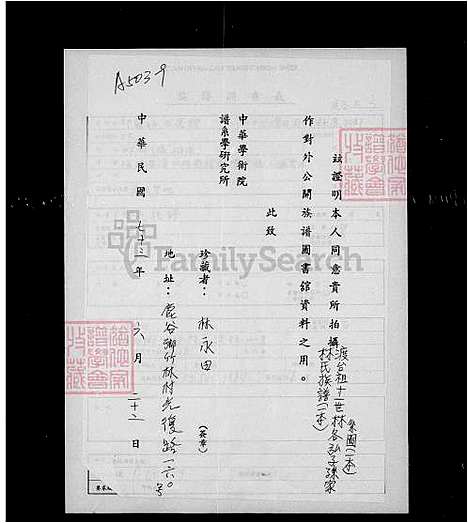 A5039
茲證明本人同意貴所拍攝
渡台祖十一世林名弘子孫家系圖(一本)
林氏族譜(一本)
作對外公開族譜圖書館資料之用。
此致
中華學術院
譜系學研究所
珍藏者：林永田
(簽章)
地址：鹿谷鄉竹林村光復路一六〇號
中華民國七十二年六月二十二日
FamilySearch